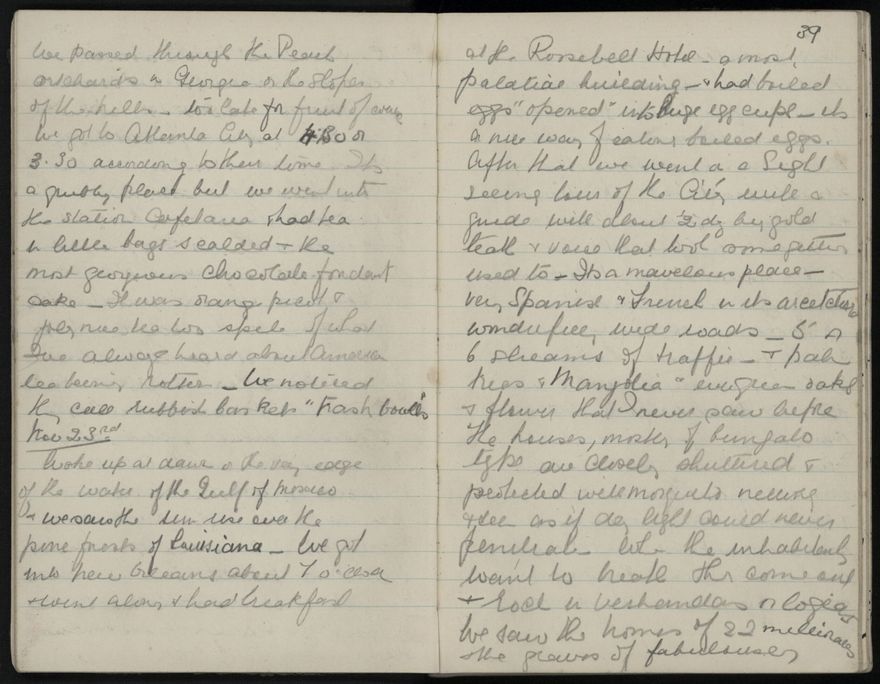 we passed through the Peach
orchards in Georgia on the slopes
of the hills - too late for fruit of course
We got to Atlanta City at 4.30 or
3.30 according to their time. Its
a grubby place but we went into
the station Cafetaria & had tea
in little bags scalded & the
most georgeous chocolate fondant
cake - It was &
jolly nice tea too spite of what
I've always heard about American
tea being rotten - We noticed
they call rubbish baskets "Trash bowls"
Nov 23rd
Woke up at dawn on the very edge
of the water of the Gulf of Mexico
& we saw the sun rise over the
pine forests of Louisiana - We got
into New Orleans about 7 o'clock
& went along & had breakfast
39
at the Roosebelt Hotel - a most
palatial building - & had boiled
eggs "opened" into huge egg cups - its
a nice way of eating boiled eggs.
After that we went a a Sight
seeing tour of the City with a
guide with about ½ dz big gold
teeth & voice that took some getting
used to - Its a marvelous place -
very Spanish & French in its arcetecture
wonderfully wide roads - 5 or
6 streams of traffic - & palm
trees & "Mangolia" evergreen oaks
& flowers that I never saw before
The houses, mostly of bungalo
type are closely shuttered &
protected with mosquito netting
& see as if day light could never
penetrate. When the inhabitants
want to breath they come out
& rock in verhandas or logias
We saw the homes of 22 millionaires
& the graves of fabulously